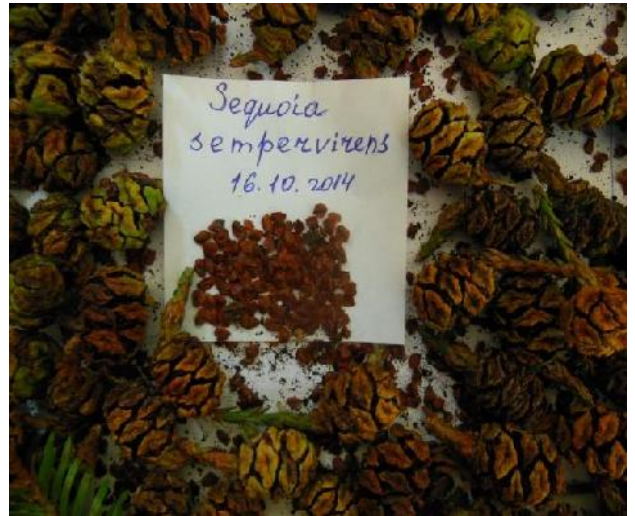 Sequoia
sempervirens
16.10.2014